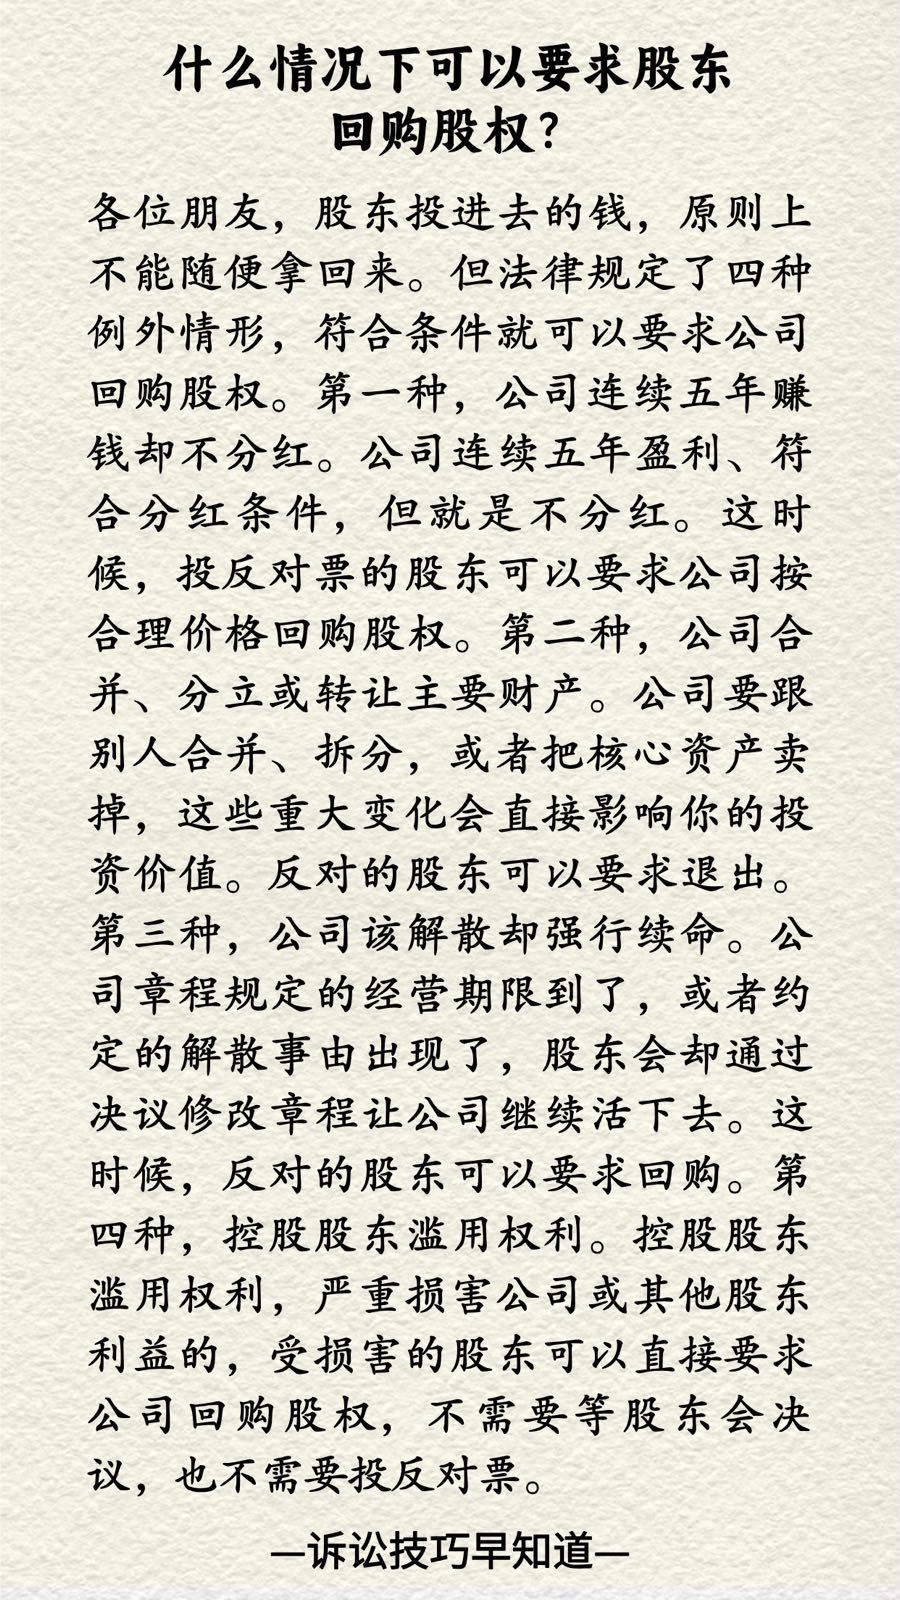 什么情况下可以要求股东
回购股权？
各位朋友，股东投进去的钱，原则上
不能随便拿回来。但法律规定了四种
例外情形，符合条件就可以要求公司
回购股权。第一种，公司连续五年赚
钱却不分红。公司连续五年盈利、符
合分红条件，但就是不分红。这时
候，投反对票的股东可以要求公司按
合理价格回购股权。第二种，公司合
并、分立或转让主要财产。公司要跟
别人合并、拆分，或者把核心资产卖
掉，这些重大变化会直接影响你的投
资价值。反对的股东可以要求退出。
第三种，公司该解散却强行续命。公
司章程规定的经营期限到了，或者约
定的解散事由出现了，股东会却通过
决议修改章程让公司继续活下去。这
时候，反对的股东可以要求回购。第
四种，控股股东滥用权利。控股股东
滥用权利，严重损害公司或其他股东
利益的，受损害的股东可以直接要求
公司回购股权，不需要等股东会决
议，也不需要投反对票。
—诉讼技巧早知道—